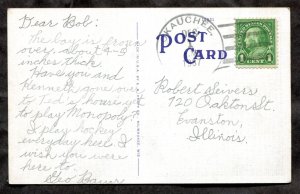 Dear Bob:
The lake is frozen
over about 4-5
inches thick.
Have you and
Kenneth gone over
to Ted's house yet
to play Monopoly?
I play hockey
everyday here. I
wish you were
here to.
Geo
OKAUCHEE
POST CARD
1 CENT 1
Robert Seivers
720 Oakton St.
Evanston,
Illinois.